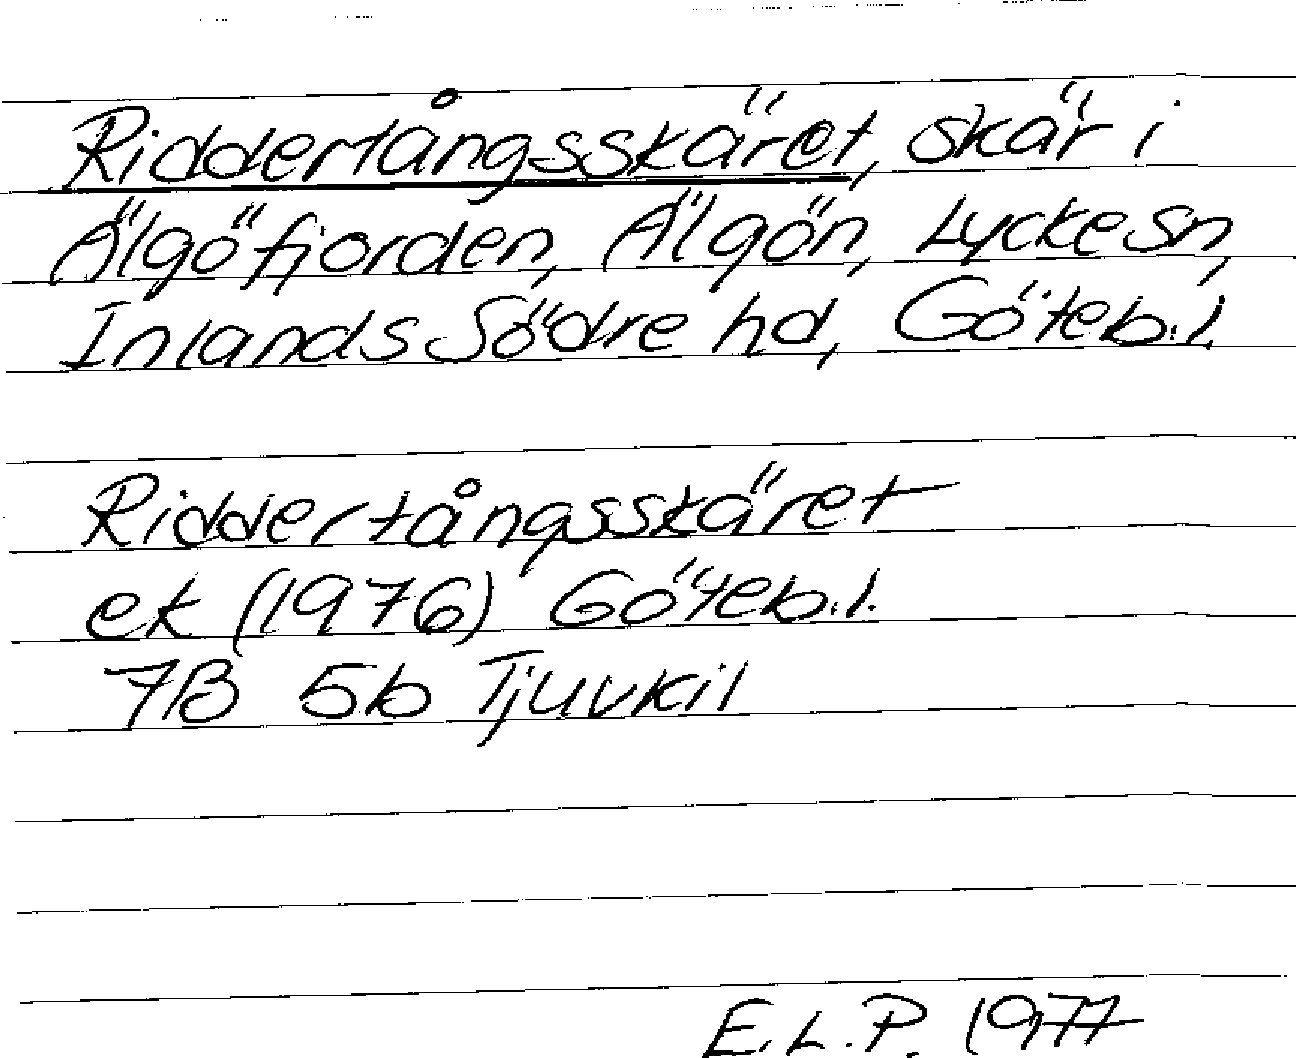 Riddertångsskäret, skär i
Älgöfjorden, Älgön, Lycke sn,
Inlands Södre hd, Göteb.l.
Riddertångsskäret
ek (1976) Göteb.l.
7B 5b Tjuvkil
E.L.P. 1977